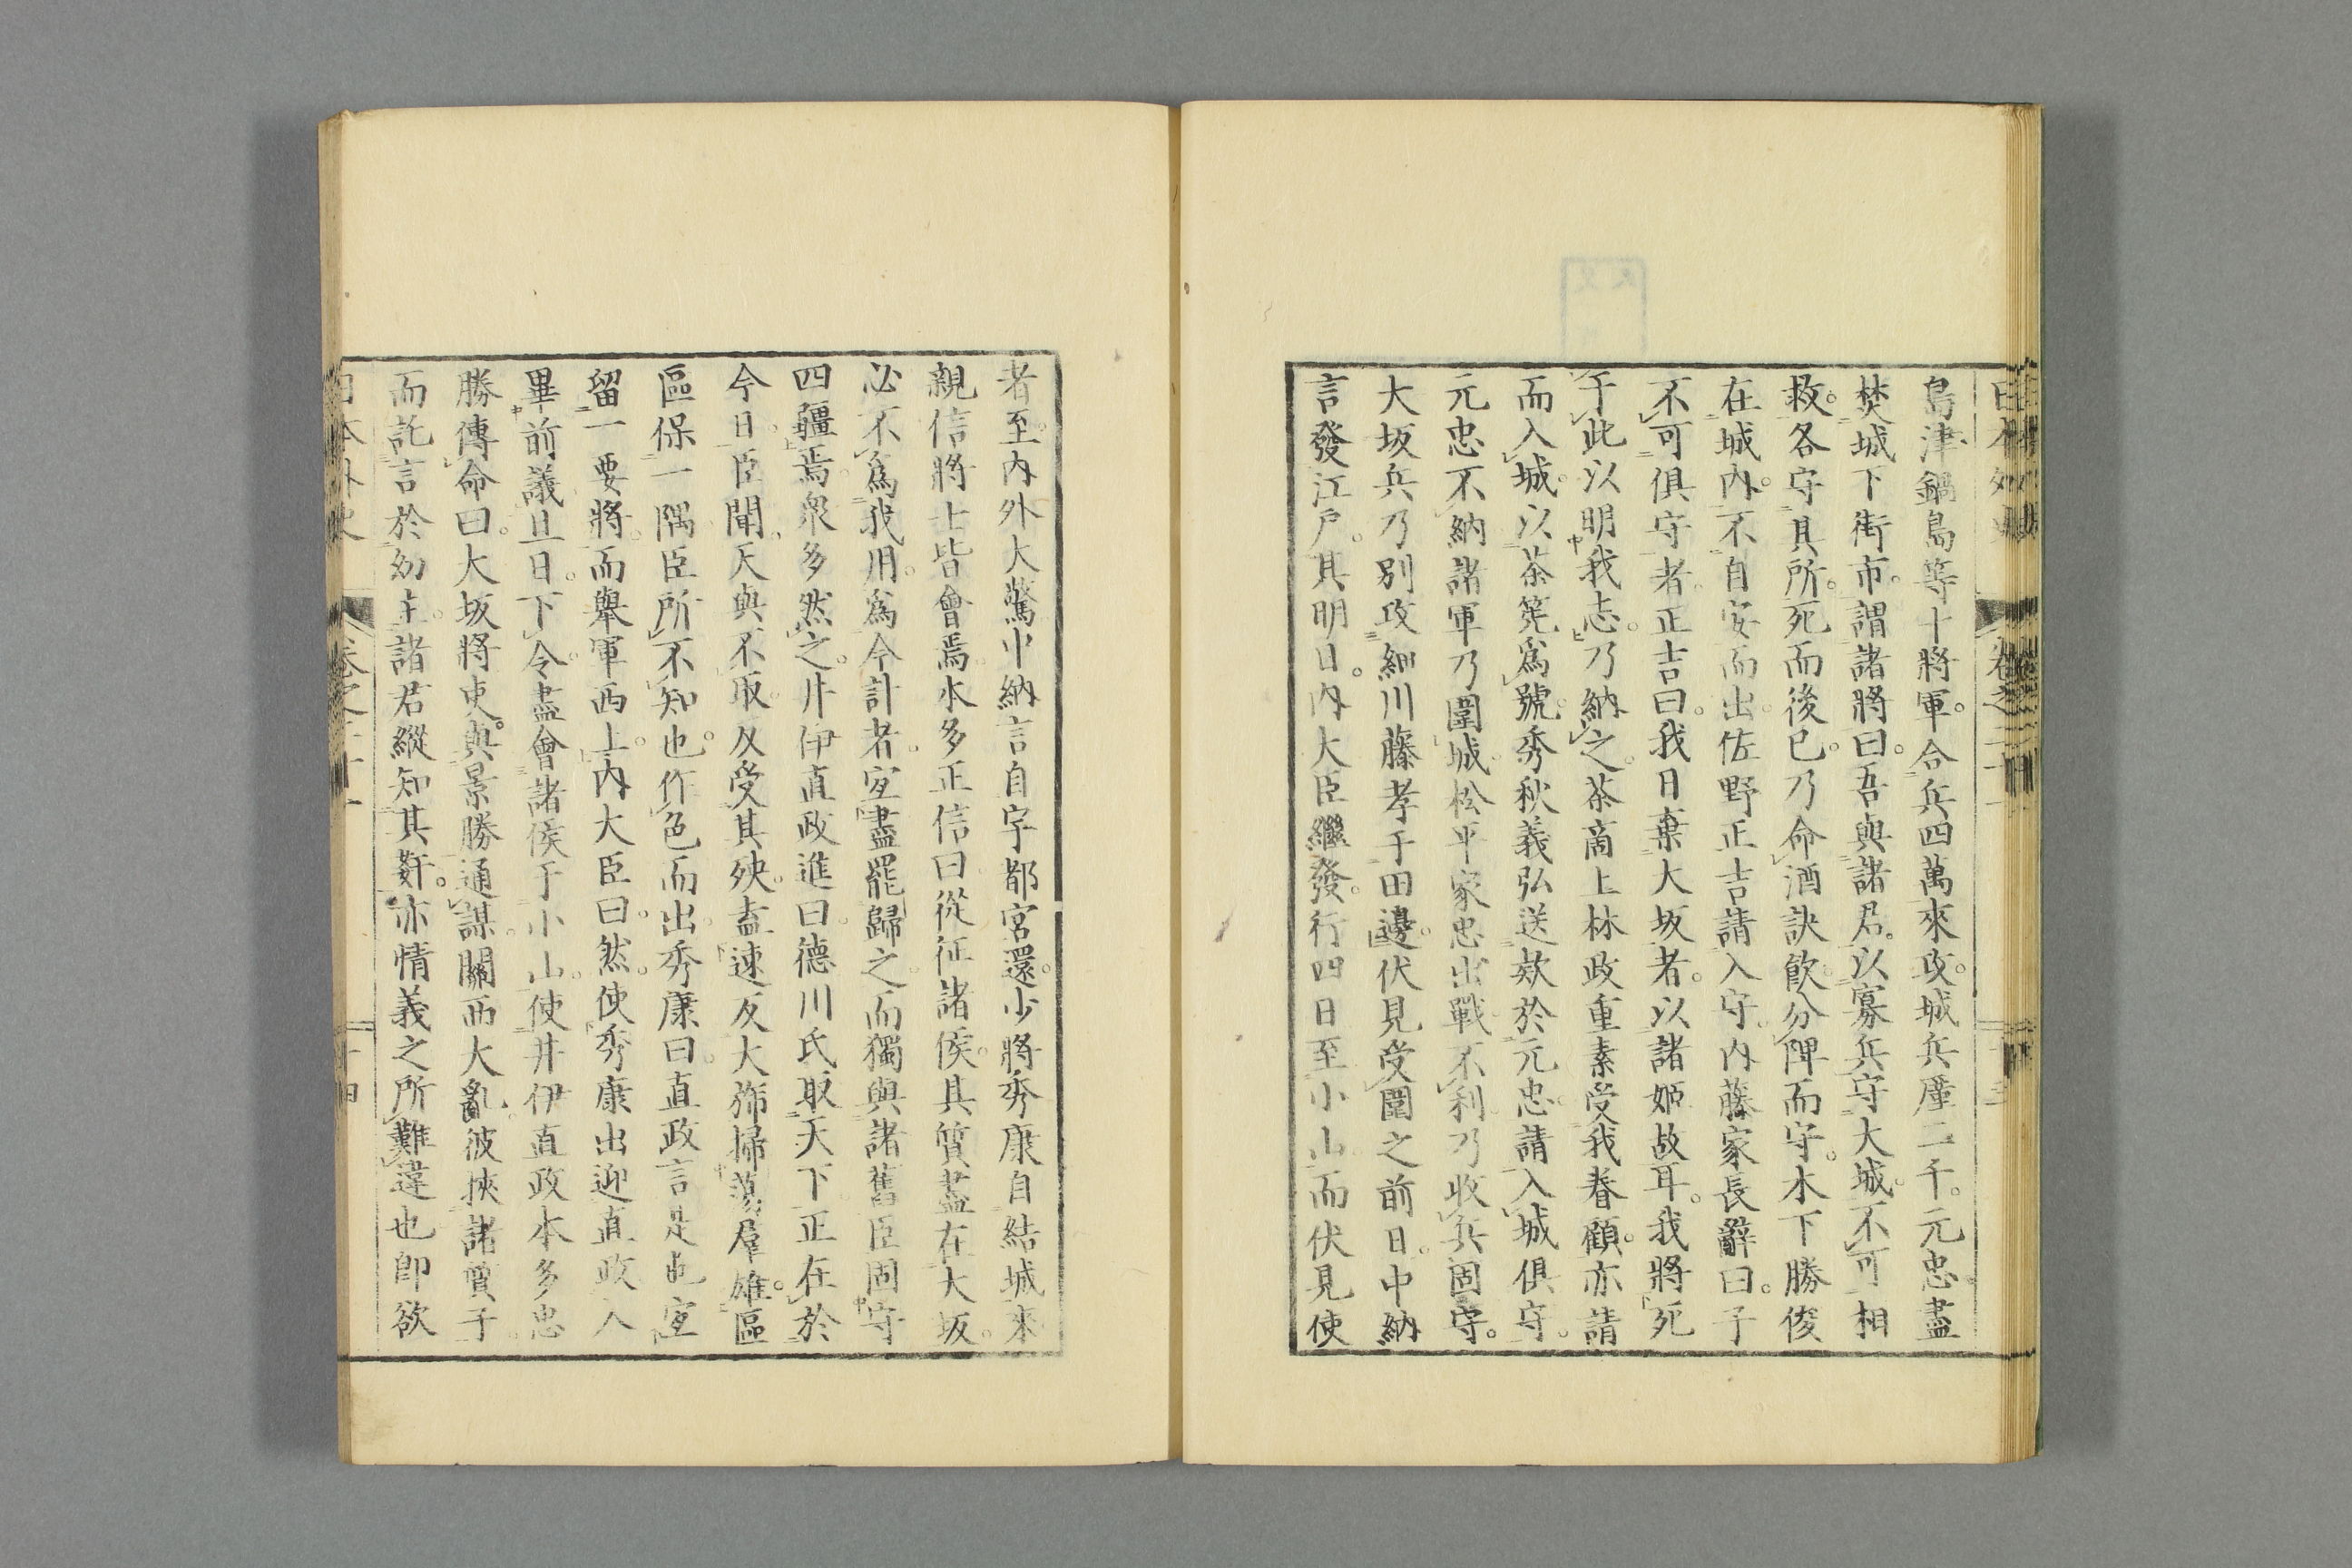 島津鍋島等十將軍。合兵四萬來攻。城兵廑二千。元忠盡
焚城下街市。謂諸將曰。吾與諸君。以寡兵守大城。不可相
救。各守其所。死而後已。乃命酒訣飮。分陴而守。木下勝俊
在城內。不自安而出。佐野正吉請入守。內藤家長辭曰。子
不可俱守者。正吉曰。我日棄大坂者。以諸姬故耳。我將死
于此以明我志。乃納之。茶商上林政重素受我眷顧。亦請
而入城。以茶筅爲號。秀秋義弘送款於元忠。請入城俱守。
元忠不納。諸軍乃圍城。松平家忠出戰。不利。乃收兵固守。
大坂兵乃別攻細川藤孝于田邊。伏見受圍之前日。中納
言發江戶。其明日。內大臣繼發。行四日至小山。而伏見使
者至。內外大驚。中納言自宇都宮還。少將秀康自結城來。
親信將士皆會焉。本多正信曰。從征諸侯。其質盡在大坂。
必不爲我用。爲今計者。宜盡罷歸之。而獨與諸舊臣固守
四疆焉。衆多然之。井伊直政進曰。德川氏取天下。正在於
今日。臣聞。天與不取。反受其殃。盍速反大旆。掃蕩羣雄。區
區保一隅。臣所不知也。作色而出。秀康曰。直政言是也。宜
留一要將。而舉軍西上。內大臣曰。然。使秀康出迎直政入
畢前議。且日。下令。盡會諸侯于小山。使井伊直政本多忠
勝傳命曰。大坂將吏。與景勝通謀。關西大亂。彼挾諸質子
而託言於幼主。諸君縱知其姧。亦情義之所難違也。卽欲
日本外史 卷之二十 十四